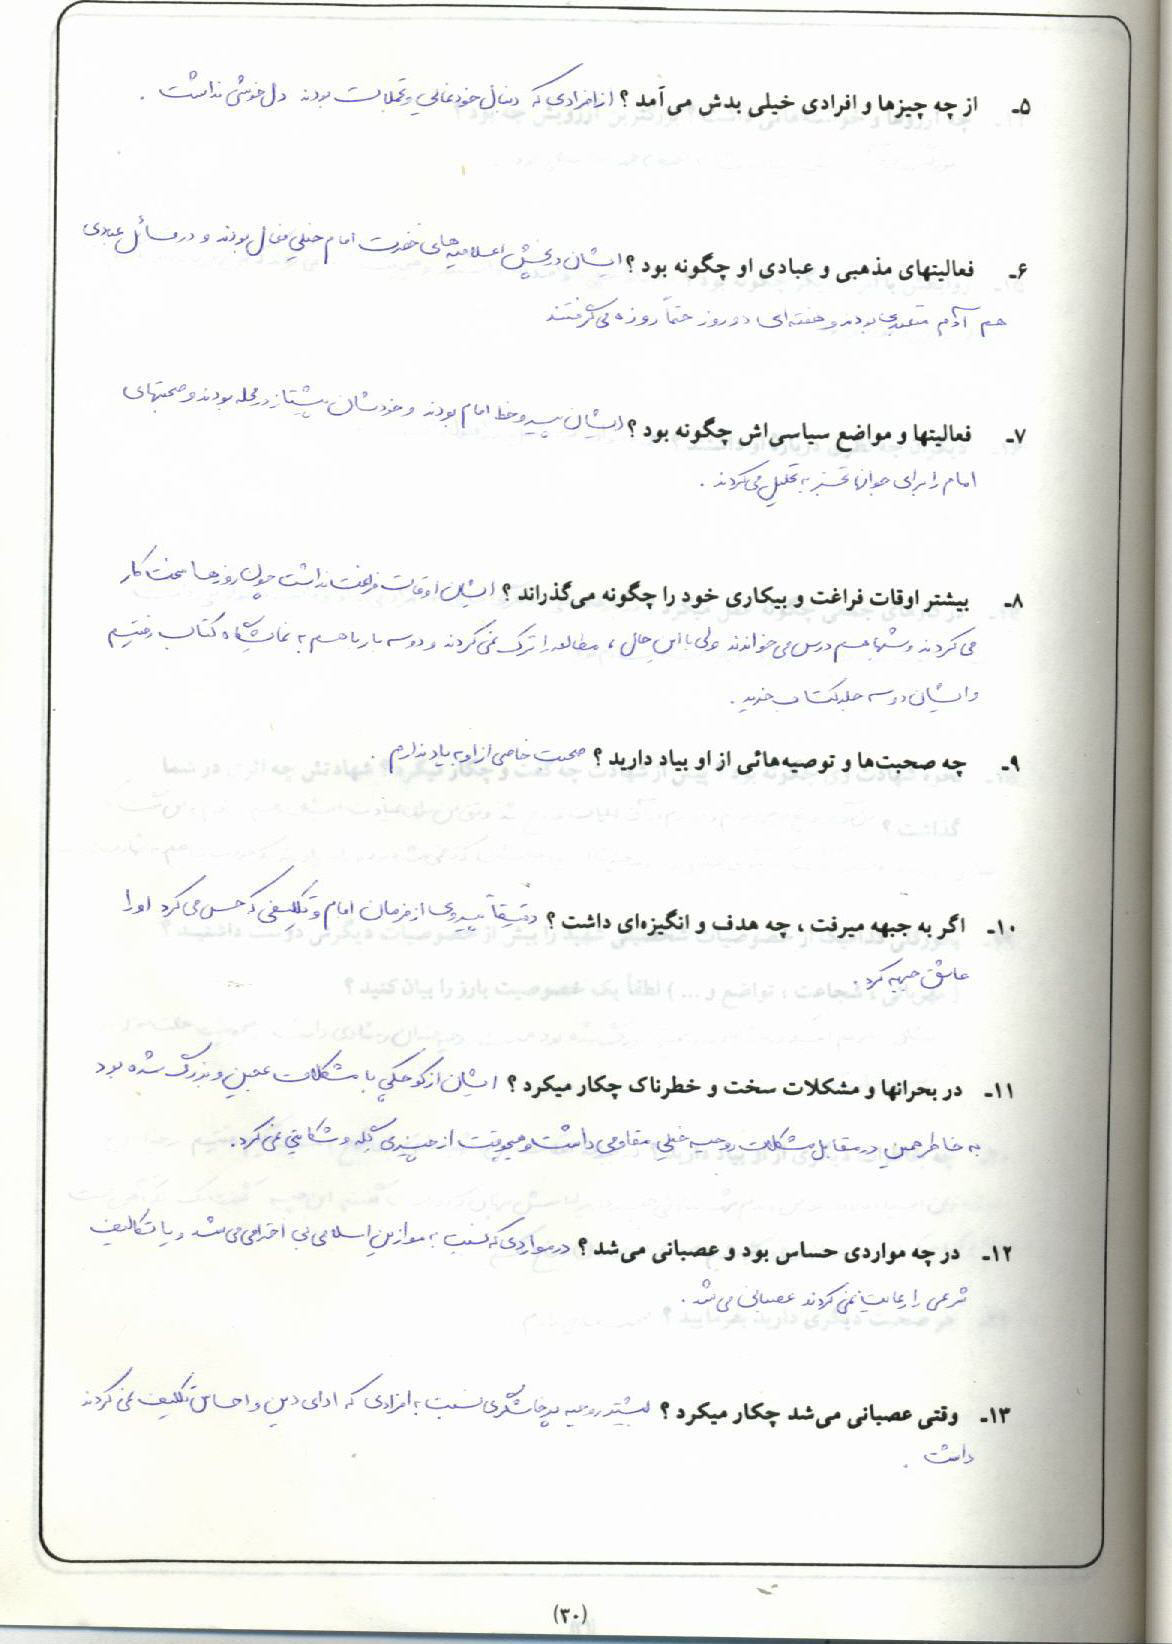 ۵ـ از چه چیزها و افرادی خیلی بدش می‌آمد ؟ از افرادی که دنبال خودنمائی و تجملات بودند دل خوشی نداشت .
۶ـ فعالیتهای مذهبی و عبادی او چگونه بود ؟ ایشان در پخش اعلامیه‌های حضرت امام خیلی فعال بودند و در مسائل عبادی
هم آدم متعبدی بودند و هفته‌ای دو روز حتماً روزه می‌گرفتند
۷ـ فعالیتها و مواضع سیاسی‌اش چگونه بود ؟ ایشان پیرو خط امام بودند و خودشان پیشتاز در محله بودند و صحبتهای
امام را برای جوانها تجزیه تحلیل می‌کردند .
۸ـ بیشتر اوقات فراغت و بیکاری خود را چگونه می‌گذراند ؟ ایشان اوقات فراغت نداشت چون روزها سخت کار
می‌کردند و شبها هم درس می‌خواندند ولی با این حال ، مطالعه را ترک نمی‌کردند و دو سه بار با هم به نمایشگاه کتاب رفتیم
و ایشان دو سه جلد کتاب خرید .
۹ـ چه صحبت‌ها و توصیه‌هائی از او بیاد دارید ؟ صحبت خاصی از او به یاد ندارم .
۱۰ـ اگر به جبهه میرفت ، چه هدف و انگیزه‌ای داشت ؟ دقیقاً پیروی از فرمان امام و تکلیفی که حس می‌کرد او را
عاشق جبهه کرد .
۱۱ـ در بحرانها و مشکلات سخت و خطرناک چکار میکرد ؟ ایشان از کوچکی با مشکلات عجین و بزرگ شده بود
به خاطر همین در مقابل مشکلات روحیه خیلی مقاومی داشت و هیچوقت از چیزی گله و شکایتی نمی‌کرد .
۱۲ـ در چه مواردی حساس بود و عصبانی می‌شد ؟ در مواردی که نسبت به موازین اسلامی بی احترامی می‌شد و یا تکالیف
شرعی را رعایت نمی‌کردند عصبانی می‌شد .
۱۳ـ وقتی عصبانی می‌شد چکار میکرد ؟ بیشتر روحیه پرخاشگری نسبت به افرادی که ادای دین و احساس تکلیف نمی‌کردند
داشت .
(۳۰)